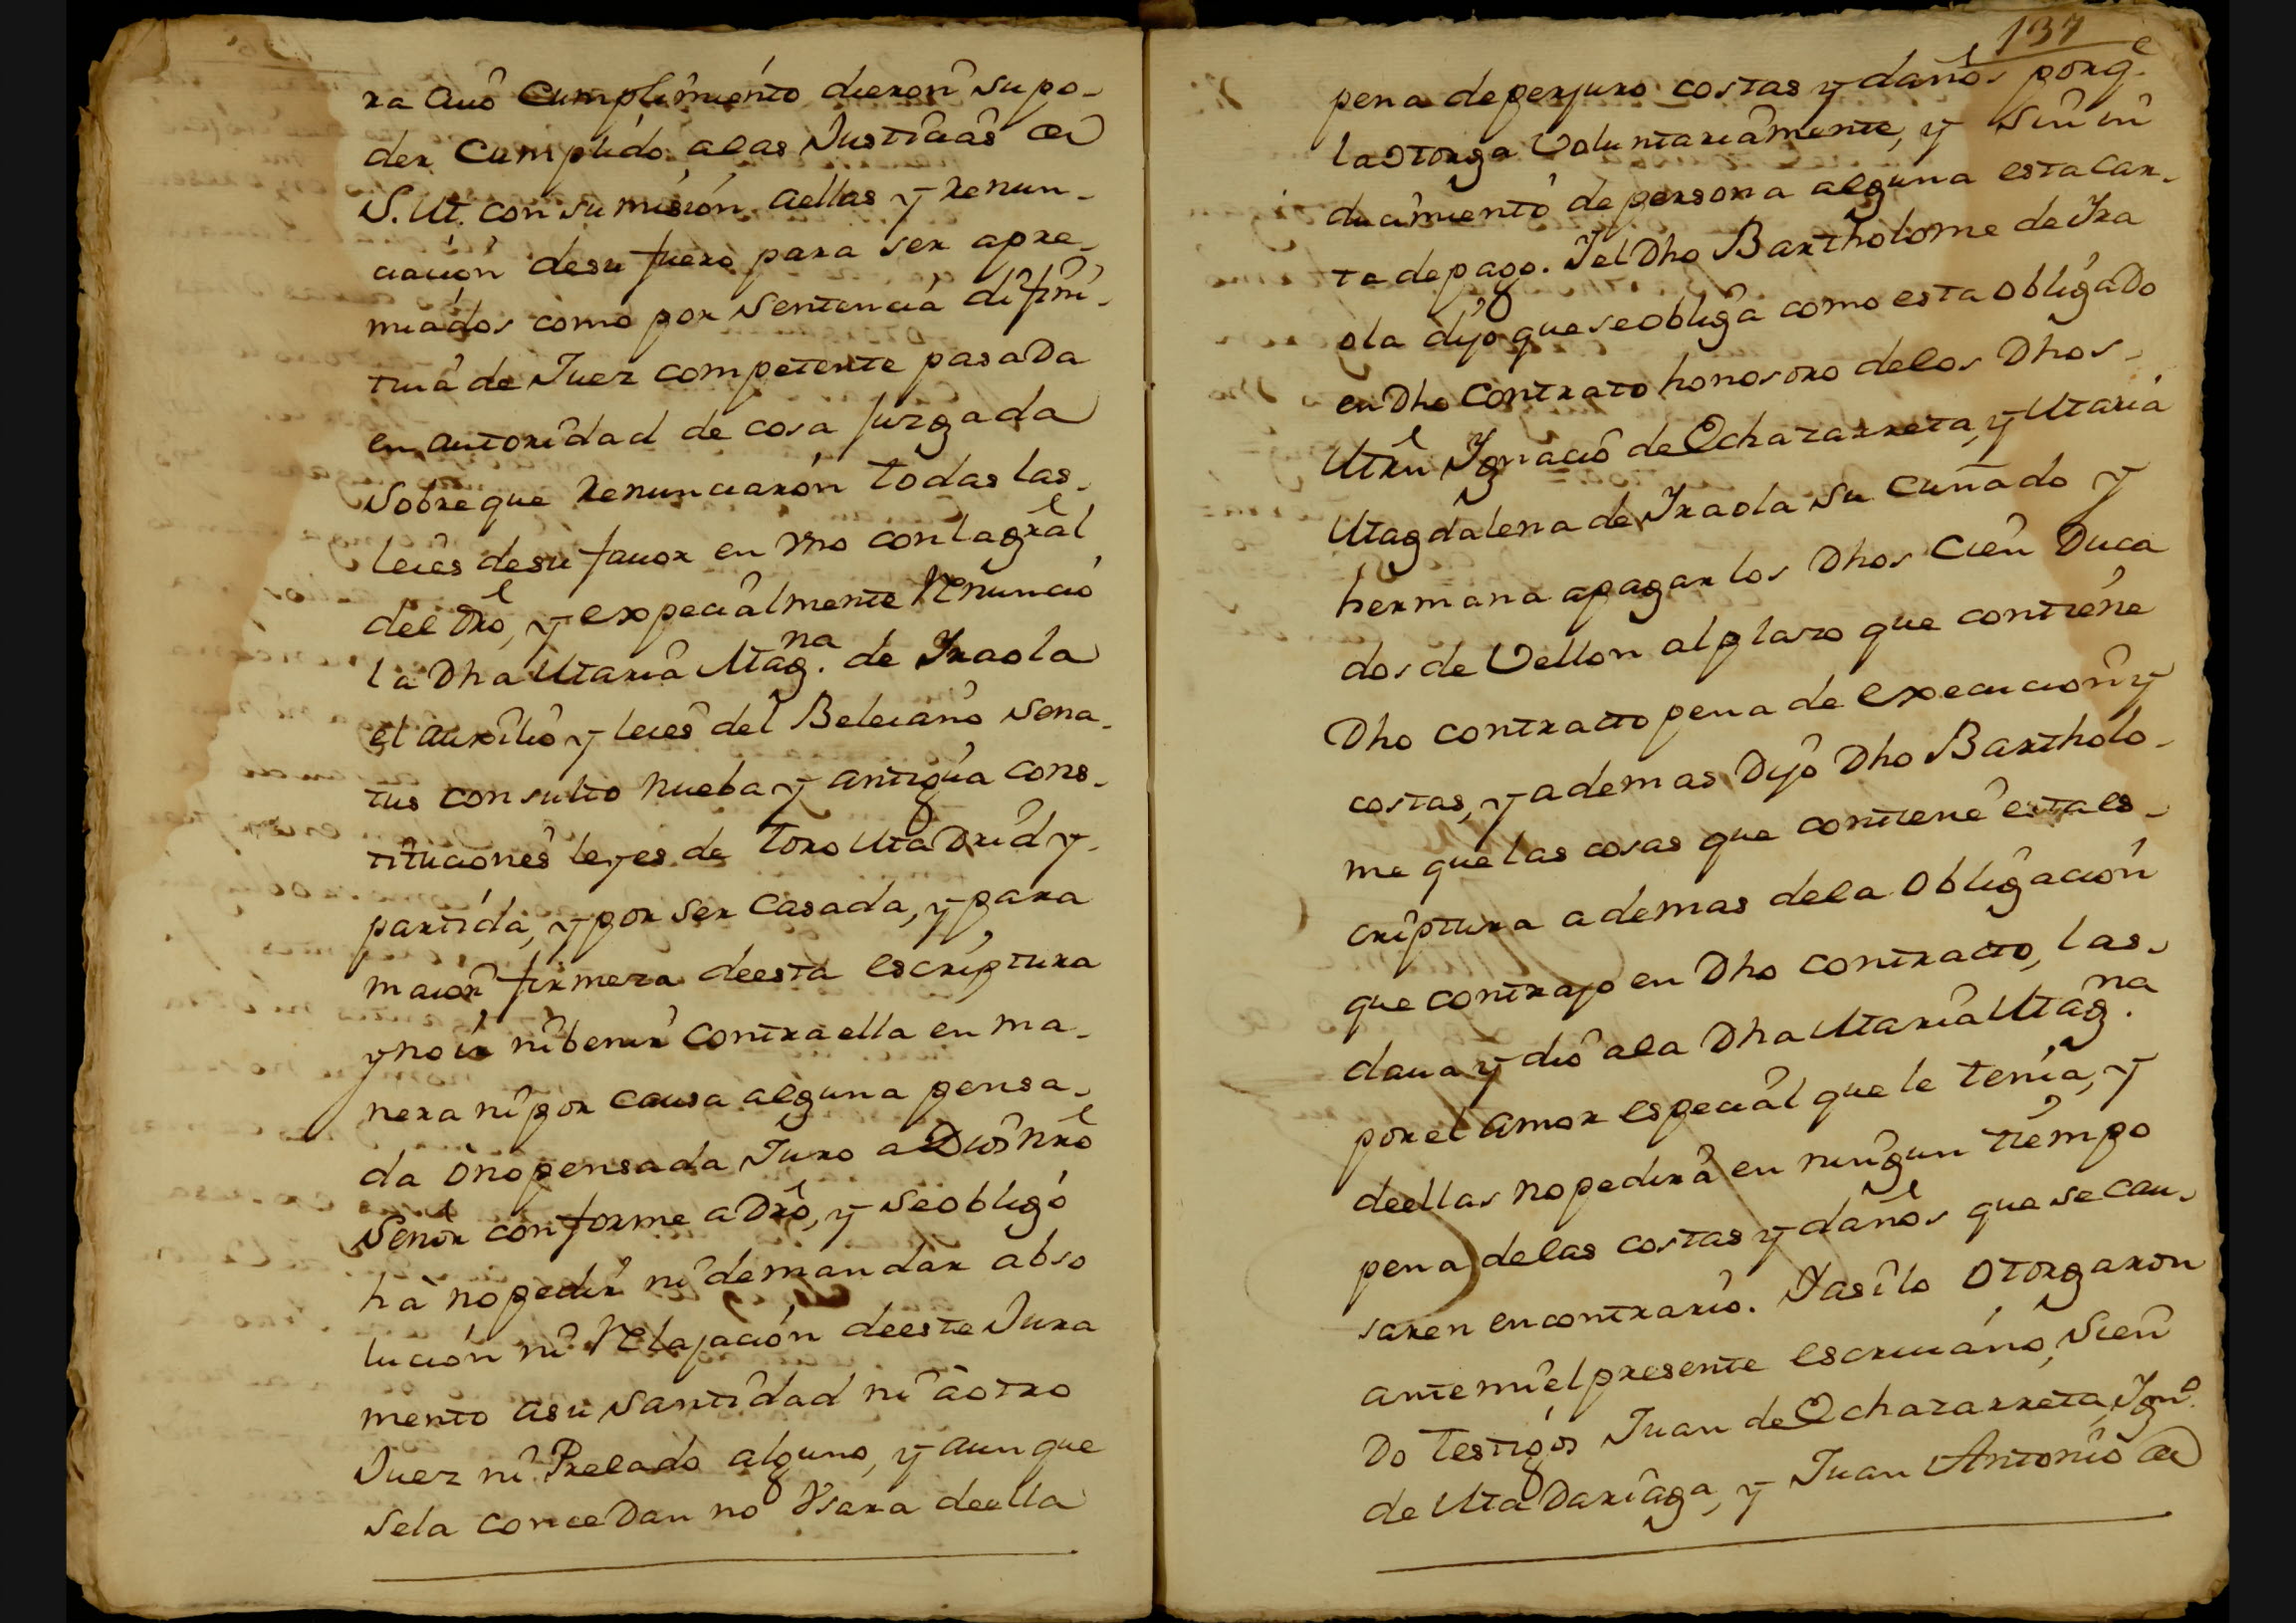 ra cuio Cumplimiento dieron su po-
der Cumplido, a las Justicias de
S. M. con sumision aellas y renun-
ciacion desu fuero para ser apre-
miados como por Sentencia difini-
tiua de Juez competente pasada
en autoridad de cosa Juzgada
Sobre que Renunciaron todas las
leies desu fauor en Vno con la gral
del dro, y expecialmente Renuncio
la Dha Maria Mag.na de Iraola
el auxilio y leies del Beleiano Sena-
tus consulto nueba y antigua cons-
tituciones leyes de Toro Madrid y
partida, y por ser Casada, y para
maior firmeza deesta escriptura
y no ir ni benir Contra ella en ma-
nera ni por Causa alguna pensa-
da ò no pensada Juro a Dios nro
Señor conforme a Dro, y se obligó
hà no pedir ni demandar abso
lucion ni Relajacion deeste Jura
mento asu Santidad ni à otro
Juez ni Prelado alguno, y aunque
sela concedan no Vsara deella
137
pena de perjuro costas y daños porq.e
la otorga Voluntariamente, y Sin in
ducimiento de persona alguna esta car-
ta de pago. I el Dho Bartholome de Ira
ola dijo que se obliga como esta obligado
en Dho Contrato honoroso delos Dhos
Mrñ Ignacio de Echazarreta, y Maria
Magdalena de Iraola su cuñado y
hermana apagar los Dhos Cien Duca
dos de Vellon al plazo que contiene
Dho contracto pena de execucion y
costas, y ademas Dijo Dho Bartholo-
me que las cosas que contiene esta es-
criptura ademas dela obligacion
que contrajo en Dho contracto, las
daua y dio ala Dha Maria Mag.na
por el amor especial que le tenia, y
deellas no pedira en ningun tiempo
pena delas costas y daños que se cau-
saren en contrario. Iasi lo otorgaron
ante mi el presente escriuano, Sien
do Testigos Juan de Echazarreta, Ign.o
de Madariaga, y Juan Antonio de